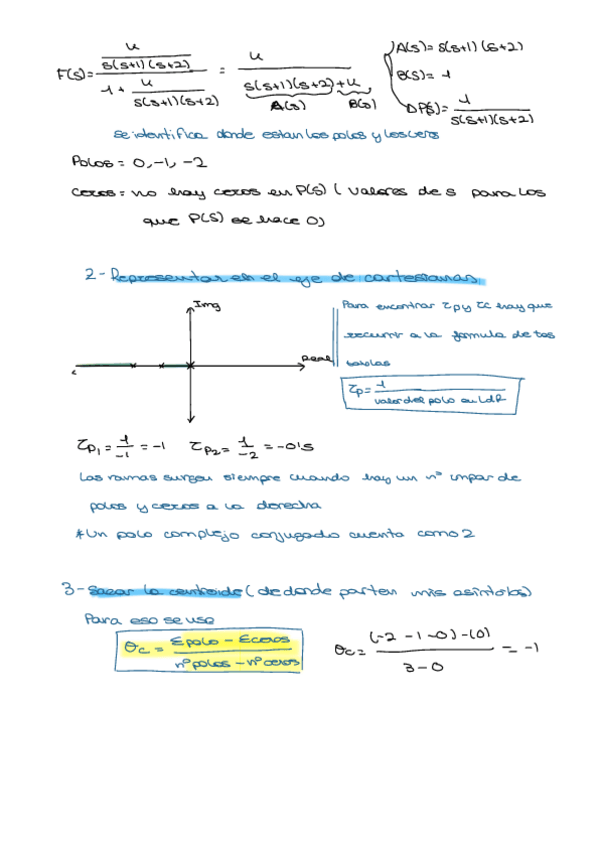 F(s) = \frac{\frac{u}{s(s+1)(s+2)}}{1 + \frac{u}{s(s+1)(s+2)}} = \frac{u}{s(s+1)(s+2)+u}
A(s) B(s)
A(s) = s(s+1)(s+2)
B(s) = 1
DP(s) = \frac{1}{s(s+1)(s+2)}
se identifica donde estan los polos y los ceros
Polos = 0, -1, -2
ceros = no hay ceros en P(s) (valores de s para los
que P(s) se hace 0)
2- Representar en el eje de cartesianas.
Img
Real
Para encontrar τp y τc hay que
recurrir a la formula de tas
tablas
τp = \frac{1}{valor del polo en LdR}
τp1 = \frac{1}{-1} = -1 τp2 = \frac{1}{-2} = -0'5
Las ramas surgen siempre cuando hay un nº impar de
polos y ceros a la derecha
*Un polo complejo conjugado cuenta como 2
3- Sacar la centroide (de donde parten mis asíntotas)
Para eso se usa
θc = \frac{Σpolo - Σceros}{nº polos - nº ceros}
θc = \frac{(-2-1-0)-(0)}{3-0} = -1